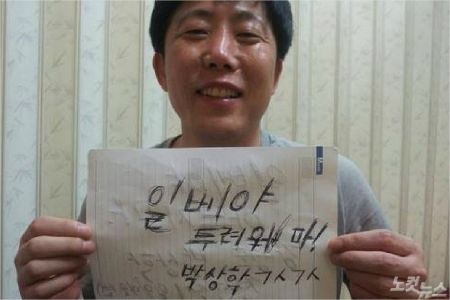 일베야
두려워 마!
박상학 ㄱㅅㄱㅅ
노컷뉴스